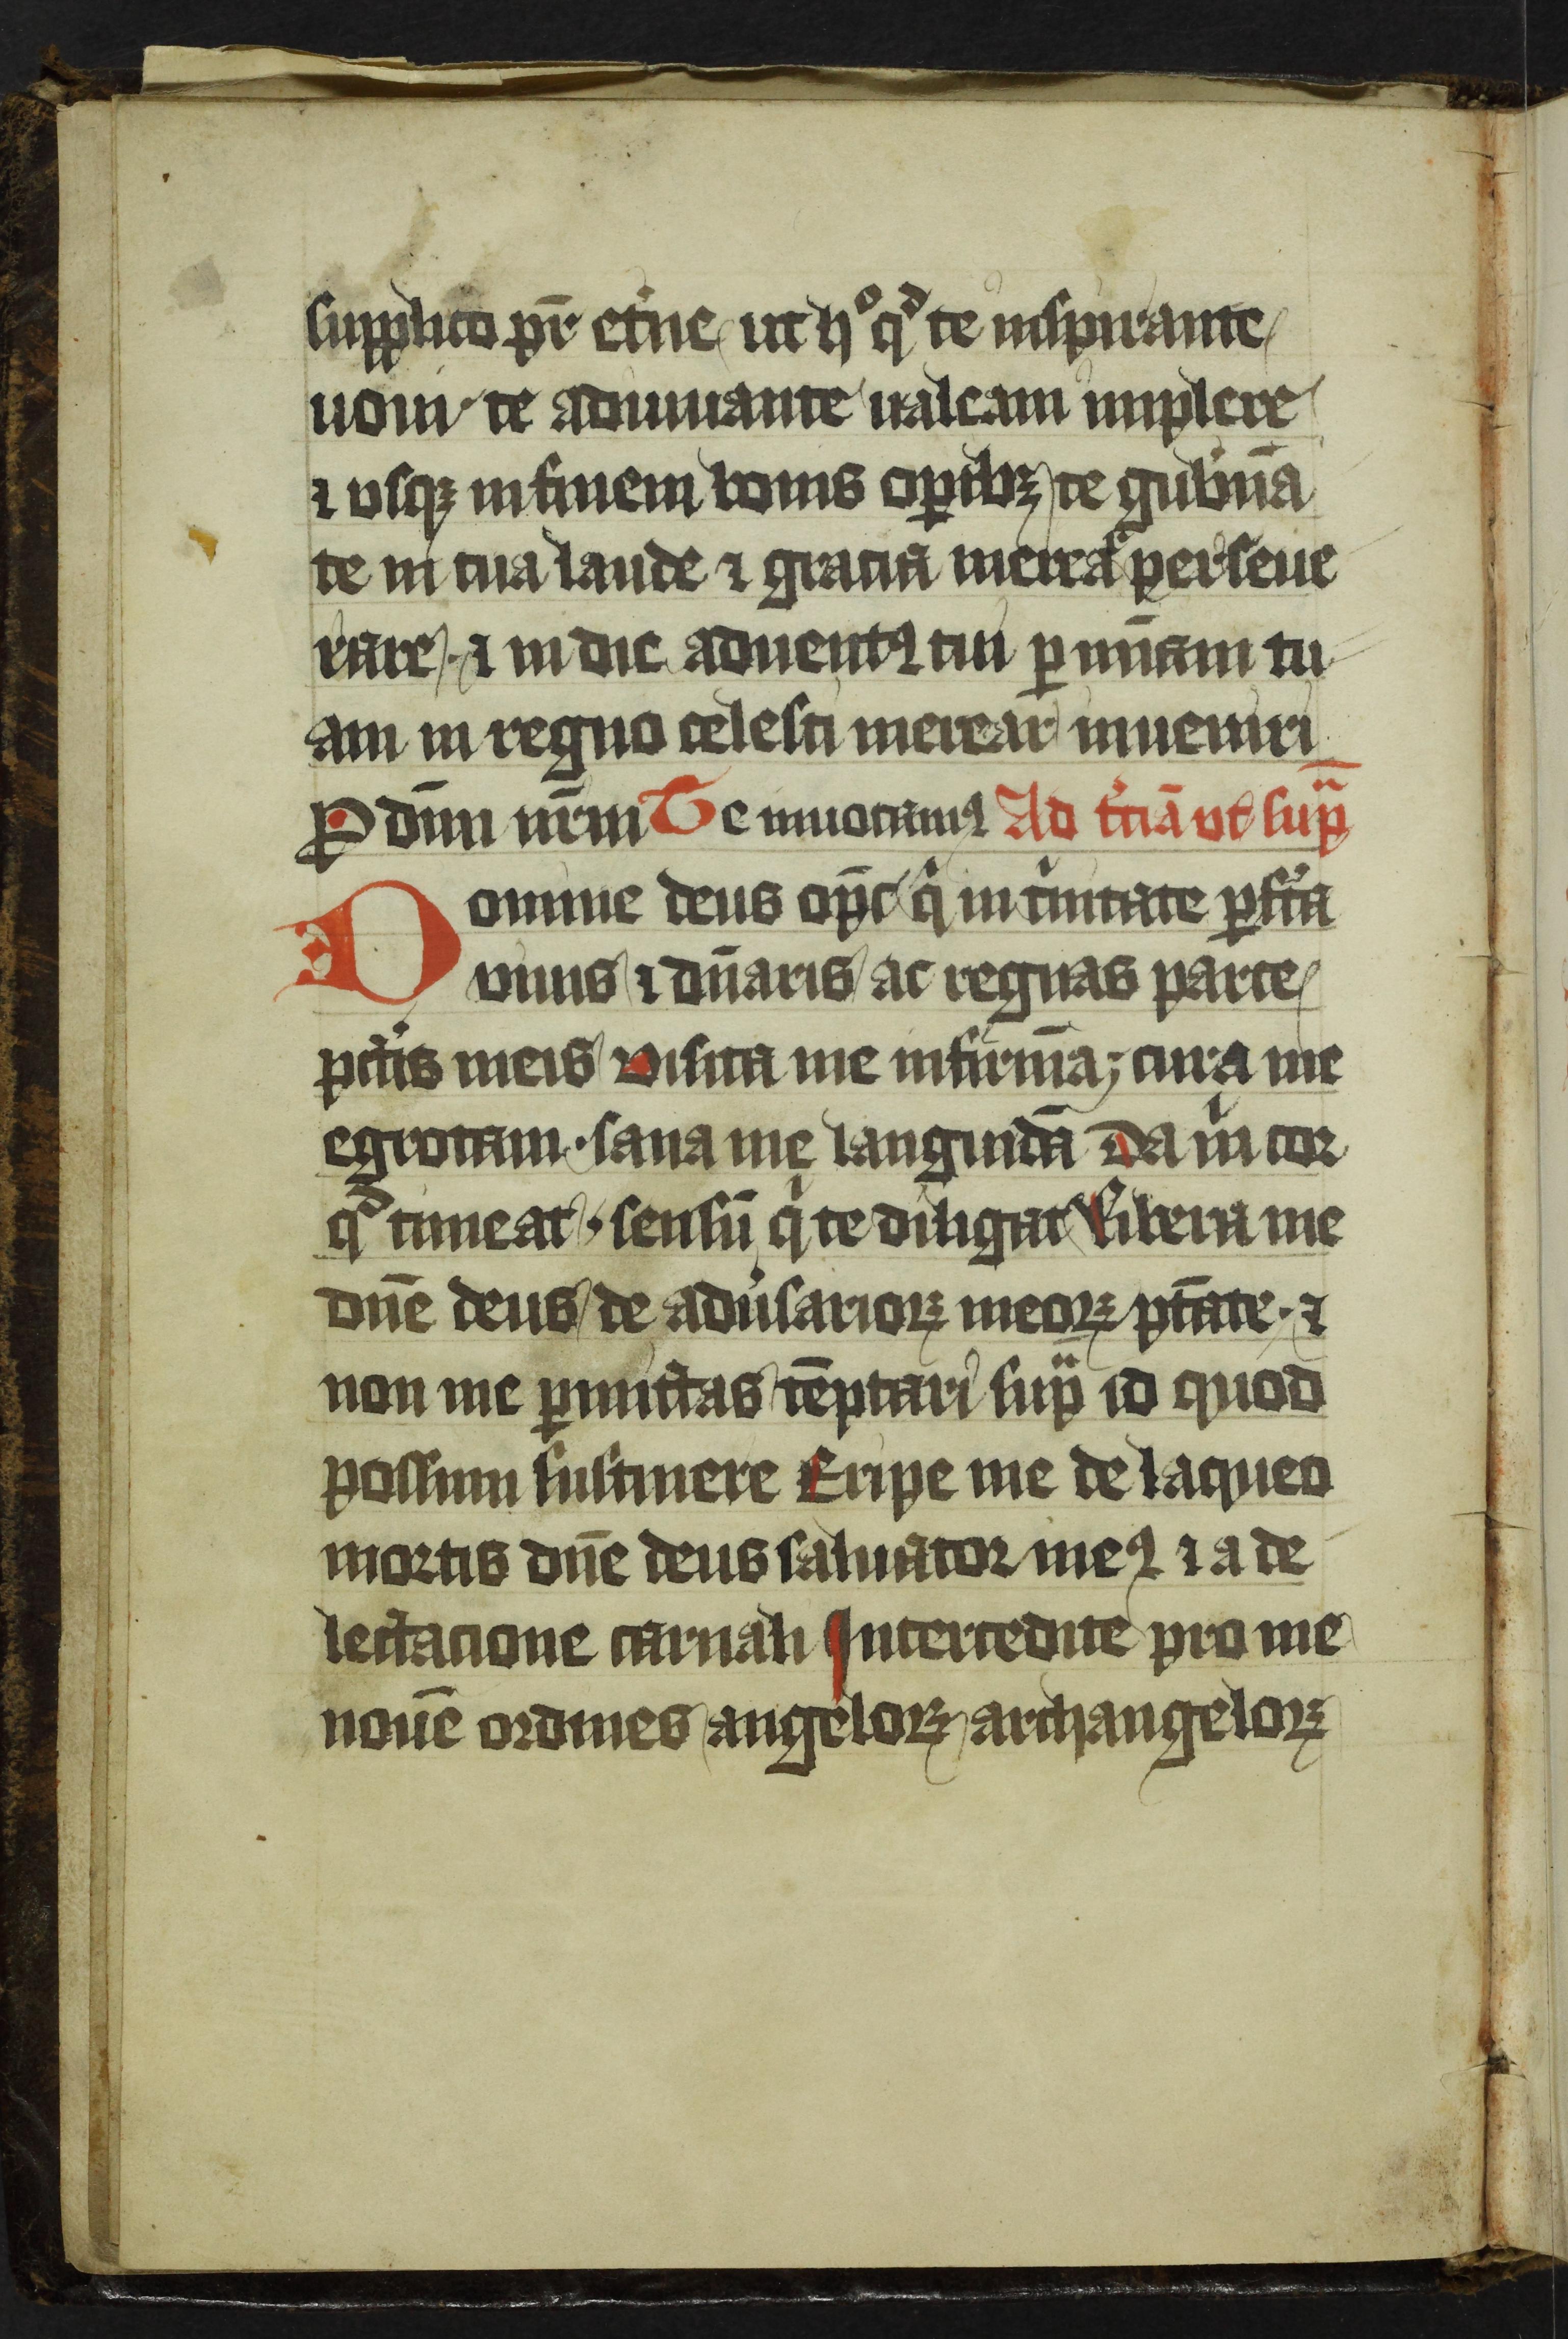 supplico pr̄ et̓ne ut hͦ qᵈ te inspirante
uoui · te adiuuante ualeam implere
⁊ vsqꝫ in finem bonis oꝑibꝫ te gub̓nā
te in tua laude ⁊ gracia merear perseue
rare · ⁊ in die aduentꝰ tui ꝑ mīam tu
am in regno celesti merear inueniri
P dnm nr̄m Te inuocamꝰ Ad t̓ciā vt sup̄
Domine deus op̄s qͥ in tͥnitate ꝑfc̄a
viuis ⁊ dn̄aris ac regnas parce
pctīs meis visita me infirmā; cura me
egrotam · sana me languidā Da mͥ cor
qᵈ timeat · sensū qͥ te diligat Libera me
dn̄e deus de adu̓sarioꝝ meoꝝ ptāte · ⁊
non me ꝑmittas tēptari sup̄ id quod
possum sustinere Eripe me de laqueo
mortis dn̄e deus saluator meꝰ ⁊ a de
lectacione carnali Intercedite pro me
nouē ordines angeloꝝ archangeloꝝ